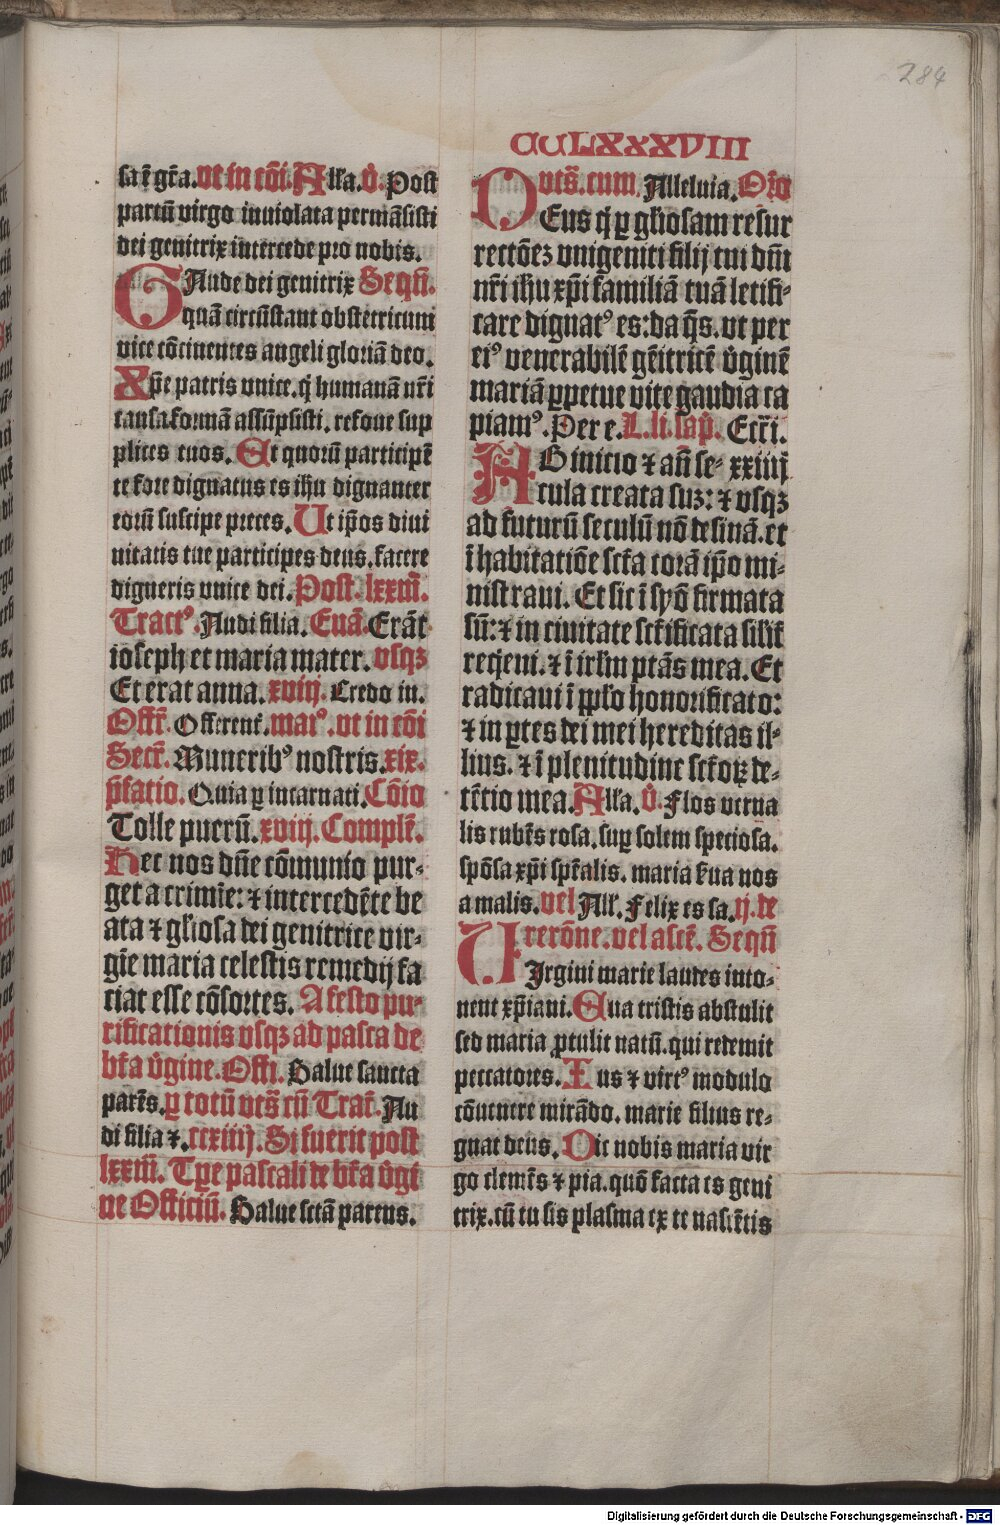 284
CCLXXXVIII
sa ē gr̄a. vt in cōi. Alľa. v̓. Post
partū virgo inuiolata permāsisti
dei genitrix intercede pro nobis.
GAude dei genitrix Seqn̄.
quā circūstant obstetricum
vice cōcinentes angeli gloriā deo.
Xp̄e patris vnice. q̇ humanā nr̄i
causa formā assūpsisti. refoue sup
plices tuos. Et quorū participē
te fore dignatus es ihu dignanter
eorū suscipe preces. Ut ip̄os diui
nitatis tue participes deus. facere
digneris vnice dei. Post. lxxm̄.
Tractꝰ. Audi filia. Euā. Erāt
ioseph et maria mater. vsqꝫ
Et erat anna. xviij. Credo in.
Offr̄. Offerent̄. marꝰ. vt in cōi
Secr̄. Muneribꝰ nostris. xix.
p̄fatio. Quia ꝑ incarnati. Cōio
Tolle puerū. xviij. Complē.
Hec nos dn̄e cōmunio pur-
get a crimīe: ⁊ intercedēte be
ata ⁊ gľiosa dei genitrice vir-
gīe maria celestis remedij fa
ciat esse cōsortes. A festo pu-
rificationis vsqꝫ ad pasca de
bt̄a v̓gine. Offi. Salue sancta
parēs. ꝑ totū vts̄ cū Trac̄t. Au
di filia ⁊. ccxiiij. Si fuerit post
lxxm̄. Tꝑe pascali de bt̄a v̓gi
ne Officiū. Salue sctā parens.
vts̄. cum. Alleluia. Or̄o
DEus q̇ ꝑ gľiosam resur
rectōeꝫ vnigeniti filij tui dn̄i
nr̄i ihu xp̄i familiā tuā letifi-
care dignatꝰ es: da q̄s. vt per
eiꝰ venerabilē gēitricē v̓ginē
mariā ꝑpetue vite gaudia ca
piamꝰ. Per e. L. li. sap̄. Eccī.
AB inicio ⁊ an̄ se- xxiiij
cula creata suꝫ: ⁊ vsqꝫ
ad futurū seculū nō desinā. et
ī habitatiōe sct̄a corā ip̄o mi-
nistraui. Et sic ī syō firmata
sū: ⁊ in ciuitate sct̄ificata silīt̄
reqēui. ⁊ ī irľm ptās mea. Et
radicaui ī pp̄ľo honorificato:
⁊ in ꝑtes dei mei hereditas il-
lius. ⁊ ī plenitudine sct̄oꝝ de-
tētio mea. Alľa. v̓. Flos verna
lis rubēs rosa. suꝑ solem speciosa.
spōsa xp̄i spt̄alis. maria fua nos
a malis. vel Alľ. Felix es sa. ij. de
rerōne. vel ascē. Seqn̄
VIrgini marie laudes into-
nent xp̄iani. Eua tristis abstulit
sed maria ꝓtulit natū. qui redemit
peccatores. Ius ⁊ virtꝰ modulo
cōuenere mirādo. marie filius re-
gnat deus. Dic nobis maria vir
go clemēs ⁊ pia. quō facta es geni
trix. cū tu sis plasma ex te nascētis
Digitalisierung gefördert durch die Deutsche Forschungsgemeinschaft - DFG